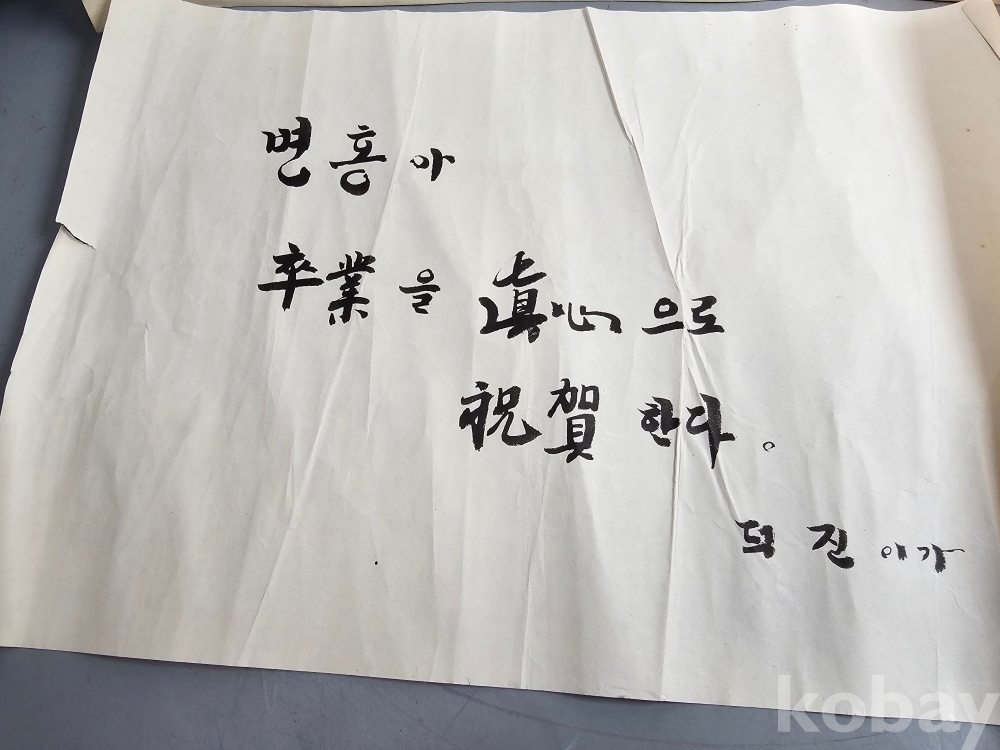 면홍아
卒業을 眞心으로
祝賀한다。
덕진이가
kobay